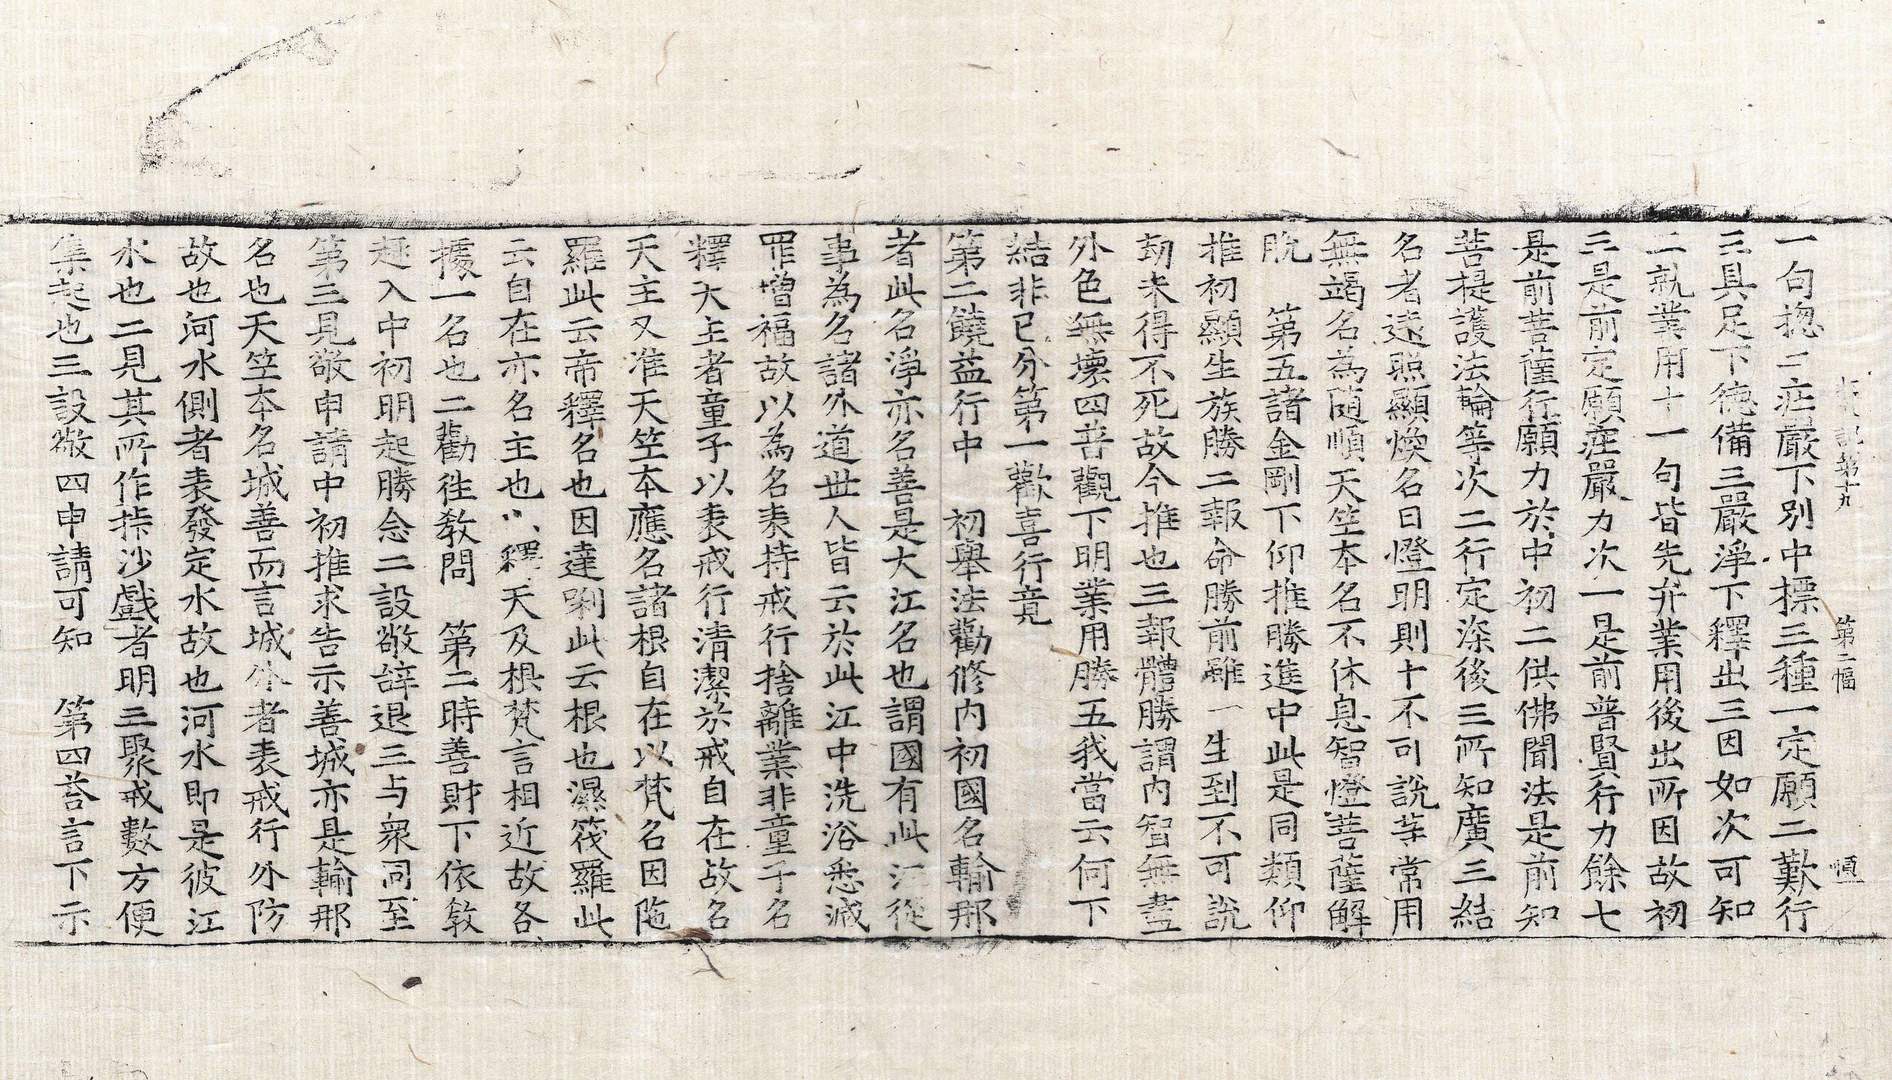 記第十九 第二幅 順
一句揔二庄嚴下別中標三種一定願二歎行
三具足下德備三嚴淨下釋出三因如次可知
二就業用十一句皆先弁業用後出所因故初
三是前定願庄嚴力次一是前普賢行力餘七
是前菩薩行願力於中初二供佛聞法是前知
菩提護法輪等次二行定深後三所知廣三結
名者遠照顯煥名曰燈明則十不可說等常用
無竭名為隨順天竺本名不休息智燈菩薩解
脫　第五諸金剛下仰推勝進中此是同類仰
推初顯生族勝二報命勝前雖一生到不可說
劫未得不死故今推也三報體勝謂內智無盡
外色無壞四普觀下明業用勝五我當云何下
結非已分第一歡喜行竟
第二饒益行中　初舉法勸修內初國名輸那
者此名淨亦名善是大江名也謂國有此江從
事為名諸外道世人皆云於此江中洗浴悉滅
罪增福故以為名表持戒行捨離業非童子名
釋天主者童子以表戒行清潔於戒自在故名
天主又准天竺本應名諸根自在以梵名因陁
羅此云帝釋名也因達唎此云根也濕筏羅此
云自在亦名主也以釋天及根梵言相近故各
據一名也二勸往教問　第二時善財下依教
趣入中初明起勝念二設敬辝退三与衆同至
第三見敬申請中初推求告示善城亦是輸那
名也天竺本名城善而言城外者表戒行外防
故也河水側者表發定水故也河水即是彼江
水也二見其所作持沙戲者明三聚戒數方便
集起也三設敬四申請可知　第四荅言下示